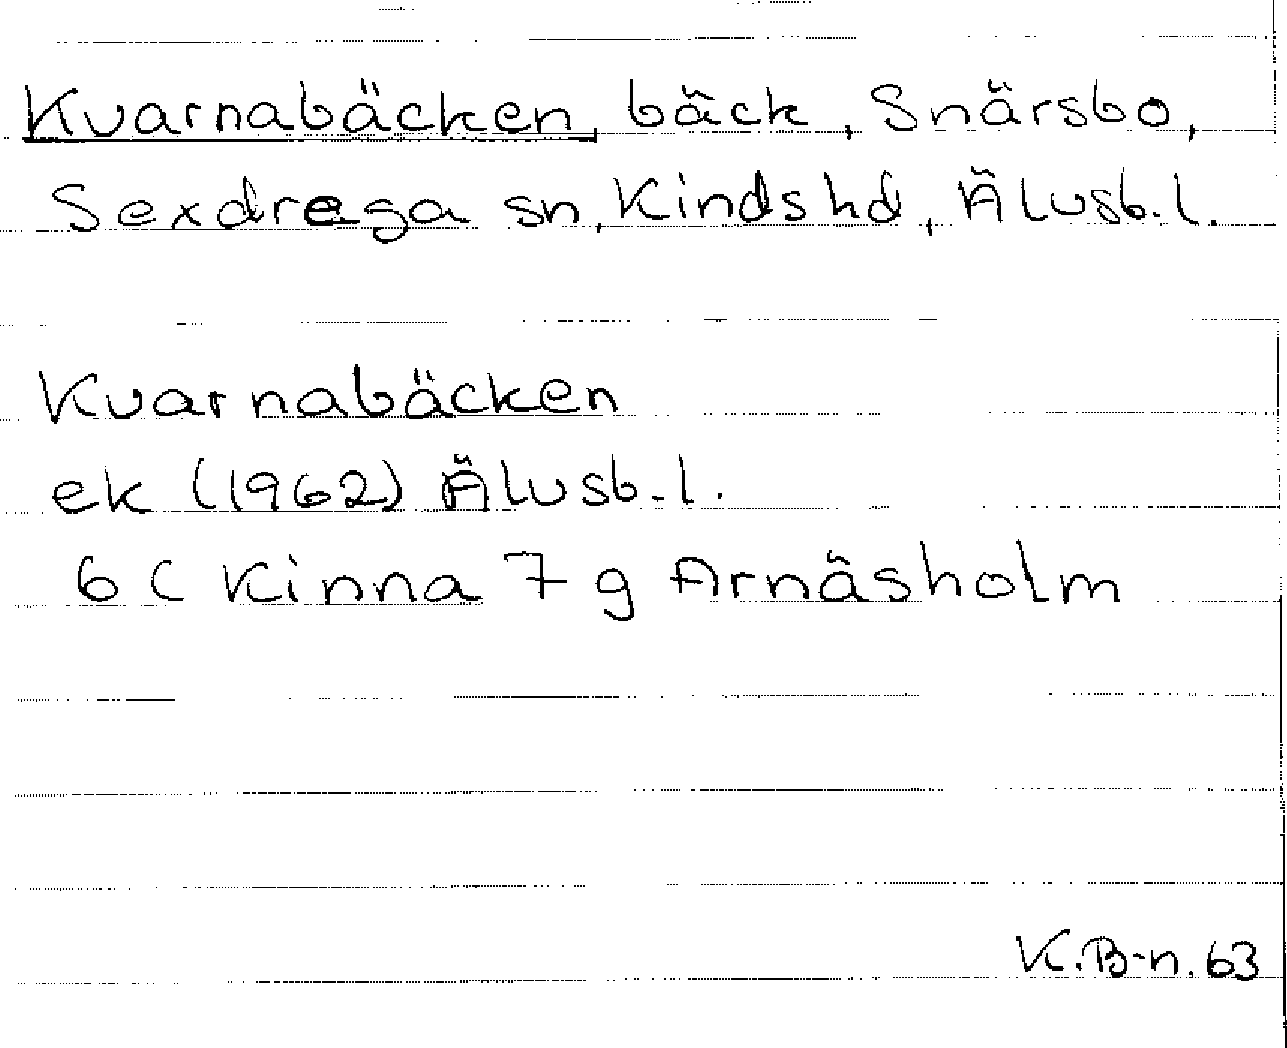 Kvarnabäcken, bäck, Snärsbo,
Sexdrega sn, Kinds hd, Älvsb. l.
Kvarnabäcken
ek (1962) Älvsb. l.
6 C Kinna 7 g Arnäsholm
K.B-n. 63